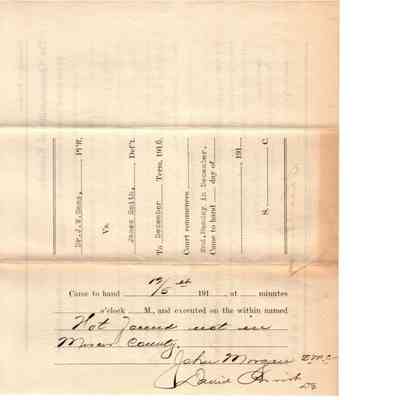 Dr.J.W.Sams, Pl'ff.
Vs.
James Smith, Def't.
To December Term, 191
Court commences
2nd.Monday in December.
Came to hand day of
191
S. C.
Came to hand 191 , at minutes
o'clock M., and executed on the within named
Not found not in
County.
John Morgan
David